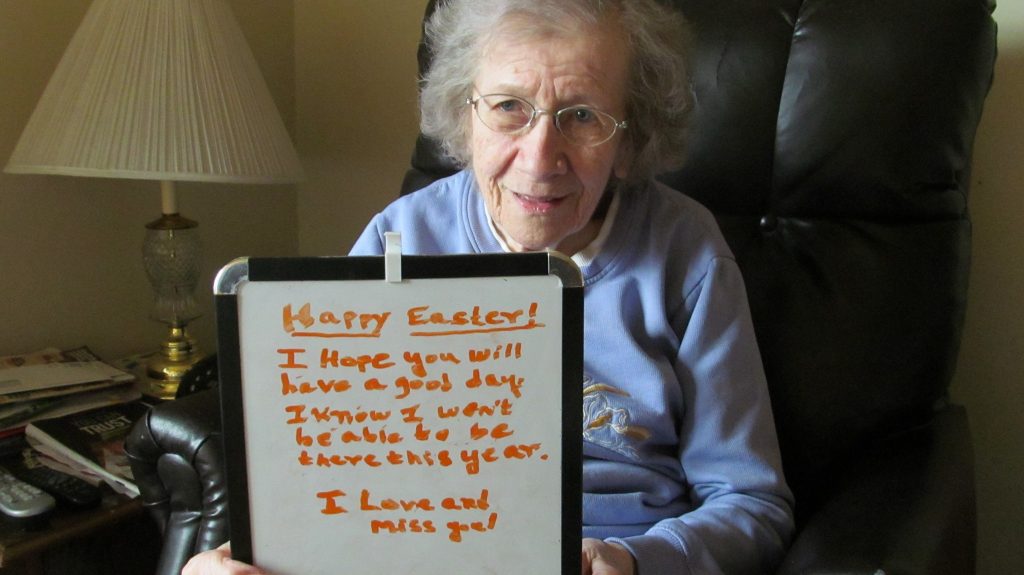 Happy Easter!
I Hope you will
have a good day.
I know I won't
be able to be
there this year.
I Love and
miss ye!
TRUST